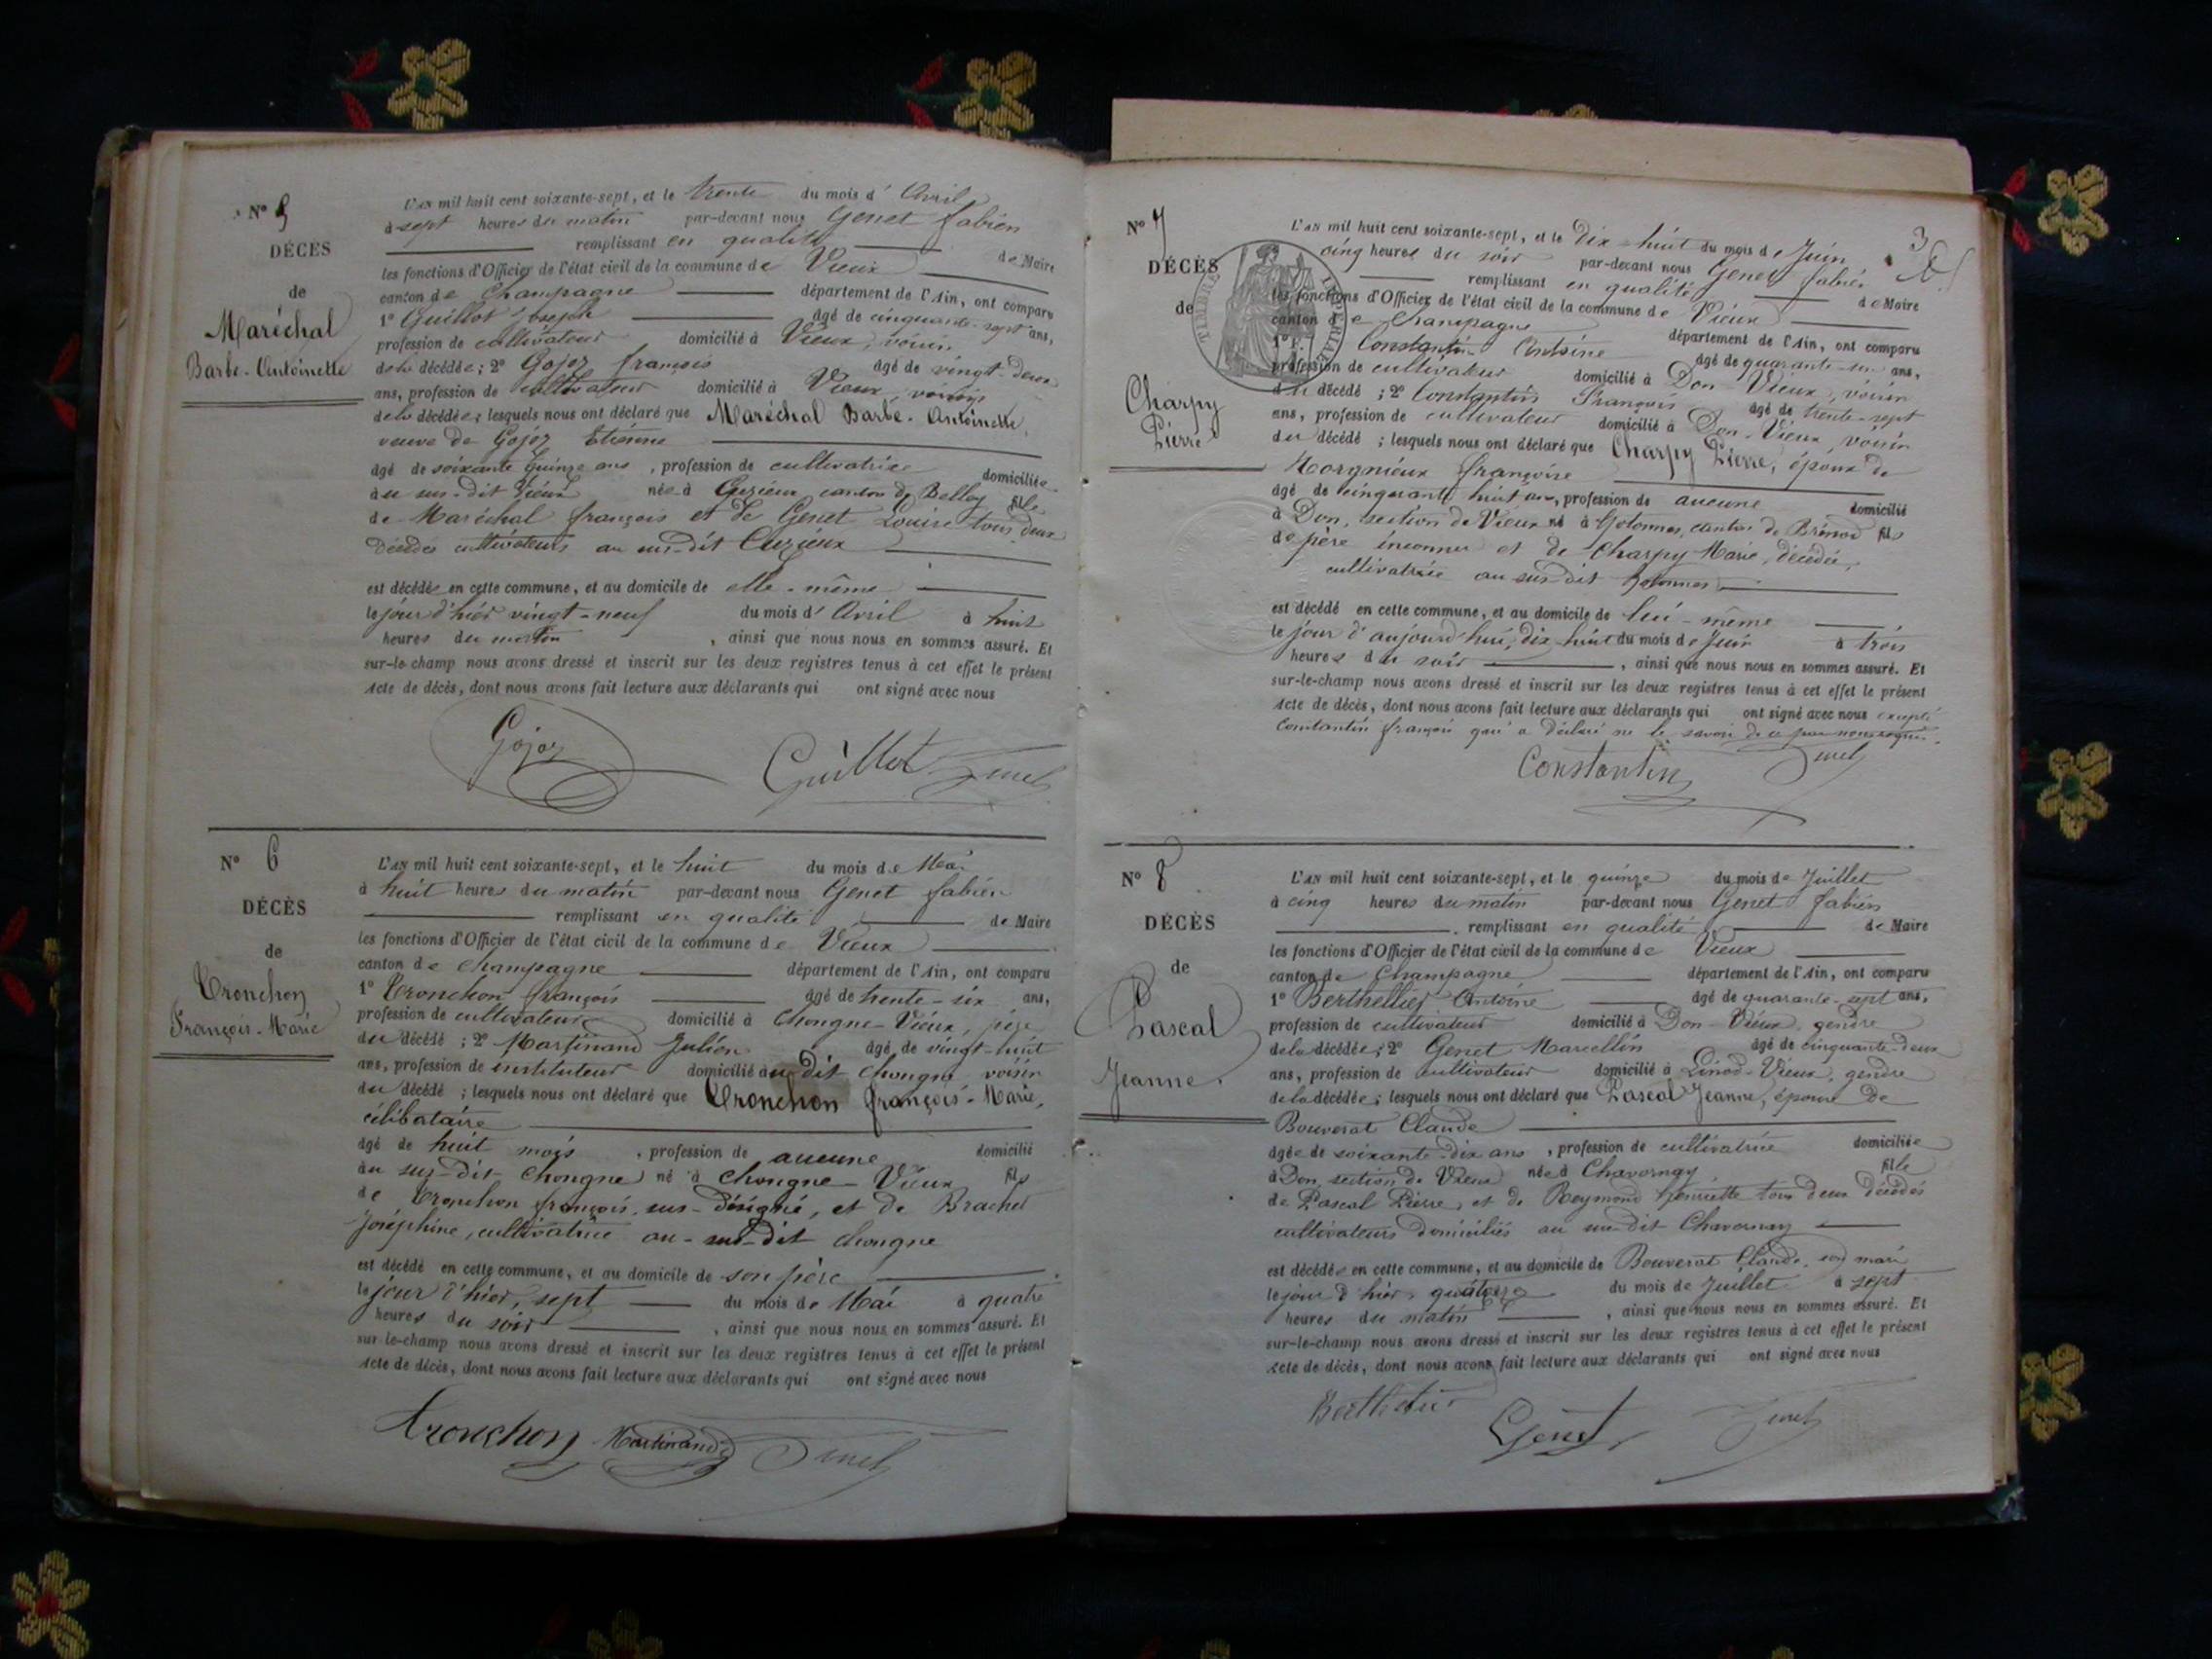 N° 5
DÉCÈS
de
Maréchal
Barbe-Antoinette
L'AN mil huit cent soixante-sept, et le trente du mois d' Avril
à sept heures du matin par-devant nous Genet fabien
remplissant en qualité de Maire
les fonctions d'Officier de l'état civil de la commune de Vieux
canton de Champagne département de l'Ain, ont comparu
1° Guillot Joseph âgé de cinquante-sept ans,
profession de cultivateur domicilié à Vieux, voisin
de la décédée; 2° Gojoz françois âgé de vingt-deux
ans, profession de cultivateur domicilié à Vieux, voisin
de la décédée; lesquels nous ont déclaré que Maréchal Barbe-Antoinette,
veuve de Gojoz Etienne
âgé de soixante quinze ans, profession de cultivatrice domiciliée
au sus-dit Vieux née à Cuzieux canton de Belley fille
de Maréchal françois et de Genet Louise tous deux
décédés cultivateurs au sus-dit Cuzieux
est décédée en cette commune, et au domicile de elle-même
le jour d'hier vingt-neuf du mois d' Avril à huit
heures du matin, ainsi que nous nous en sommes assuré. Et
sur-le-champ nous avons dressé et inscrit sur les deux registres tenus à cet effet le présent
acte de décès, dont nous avons fait lecture aux déclarants qui ont signé avec nous
Gojoz Guillot Genet
N° 6
DÉCÈS
de
Tronchon
François-Marie
L'AN mil huit cent soixante-sept, et le huit du mois de Mai
à huit heures du matin par-devant nous Genet fabien
remplissant en qualité de Maire
les fonctions d'Officier de l'état civil de la commune de Vieux
canton de Champagne département de l'Ain, ont comparu
1° Tronchon françois âgé de trente-six ans,
profession de cultivateur domicilié à Chongne-Vieux, père
du décédé; 2° Martinand Julien âgé de vingt-huit
ans, profession de instituteur domicilié au dit Chongne voisin
du décédé; lesquels nous ont déclaré que Tronchon françois-Marie,
célibataire
âgé de huit mois, profession de aucune domicilié
au sus-dit Chongne né à Chongne-Vieux fils
de Tronchon françois, sus-désigné, et de Brachet
Joséphine, cultivatrice au-sus-dit Chongne
est décédé en cette commune, et au domicile de son père
le jour d'hier, sept du mois de Mai à quatre
heures du soir, ainsi que nous nous en sommes assuré. Et
sur-le-champ nous avons dressé et inscrit sur les deux registres tenus à cet effet le présent
acte de décès, dont nous avons fait lecture aux déclarants qui ont signé avec nous
Tronchon Martinand Genet
3
N° 7
DÉCÈS
de
Charpy
Pierre
TIMBRE IMPERIAL
L'AN mil huit cent soixante-sept, et le dix-huit du mois de Juin
cinq heures du soir par-devant nous Genet fabien
remplissant en qualité de Maire
les fonctions d'Officier de l'état civil de la commune de Vieux
canton de Champagne département de l'Ain, ont comparu
1° Constantin Antoine âgé de quarante-un ans,
profession de cultivateur domicilié à Don-Vieux, voisin
du décédé; 2° Constantin François âgé de trente-sept
ans, profession de cultivateur domicilié à Don-Vieux voisin
du décédé; lesquels nous ont déclaré que Charpy Pierre, époux de
Morgnieux françoise
âgé de cinquante huit ans, profession de aucune domicilié
à Don, section de Vieux né à hotonnes, canton de Brénod fils
de père inconnu et de Charpy Marie, décédée,
cultivatrice au sus-dit hotonnes
est décédé en cette commune, et au domicile de lui-même
le jour d'aujourd'hui, dix-huit du mois de Juin à trois
heures du soir, ainsi que nous nous en sommes assuré. Et
sur-le-champ nous avons dressé et inscrit sur les deux registres tenus à cet effet le présent
acte de décès, dont nous avons fait lecture aux déclarants qui ont signé avec nous excepté
Constantin françois qui a déclaré ne le savoir de ce par nous requis.
Constantin Genet
N° 8
DÉCÈS
de
Pascal
Jeanne.
L'AN mil huit cent soixante-sept, et le quinze du mois de Juillet
à cinq heures du matin par-devant nous Genet fabien
remplissant en qualité de Maire
les fonctions d'Officier de l'état civil de la commune de Vieux
canton de Champagne département de l'Ain, ont comparu
1° Berthellier Antoine âgé de quarante-sept ans,
profession de cultivateur domicilié à Don-Vieux, gendre
de la décédée; 2° Genet Marcellin âgé de cinquante-deux
ans, profession de cultivateur domicilié à Linod-Vieux, gendre
de la décédée; lesquels nous ont déclaré que Pascal Jeanne, épouse de
Bouverat Claude
âgée de soixante-dix ans, profession de cultivatrice domiciliée
à Don, section de Vieux née à Chavornay fille
de Pascal Pierre, et de Reymond henriette tous deux décédés
cultivateurs domiciliés au sus-dit Chavornay
est décédée en cette commune, et au domicile de Bouverat Claude, son mari
le jour d'hier, quatorze du mois de Juillet à sept
heures du matin, ainsi que nous nous en sommes assuré. Et
sur-le-champ nous avons dressé et inscrit sur les deux registres tenus à cet effet le présent
acte de décès, dont nous avons fait lecture aux déclarants qui ont signé avec nous
Genet Genet